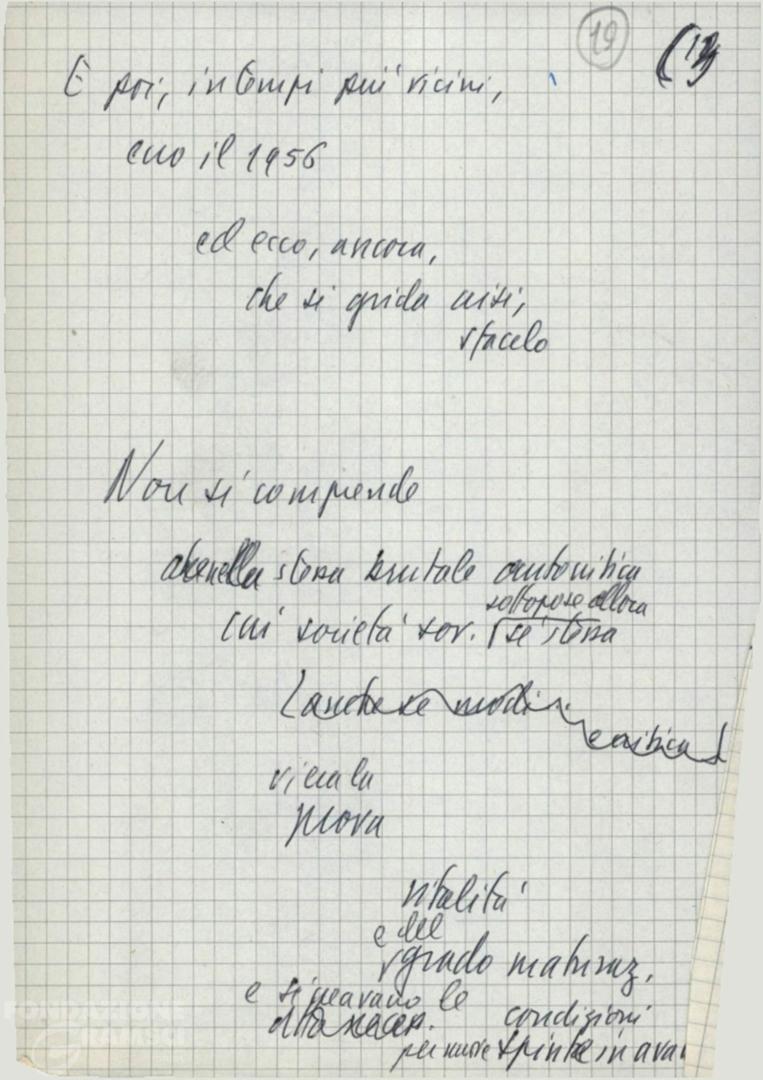 19
E poi, in tempi più vicini,
ecco il 1956
ed ecco, ancora,
che si grida crisi,
sfacelo
Non si comprende
che nella stessa brutale autocritica
sottopose allora
cui società sov. se stessa
(anche se modi
e critica)
vi era la
prova
vitalità
e del
grado maturaz.
e si creavano le
condizioni
per nuove spinte in ava
FONDAZIONE